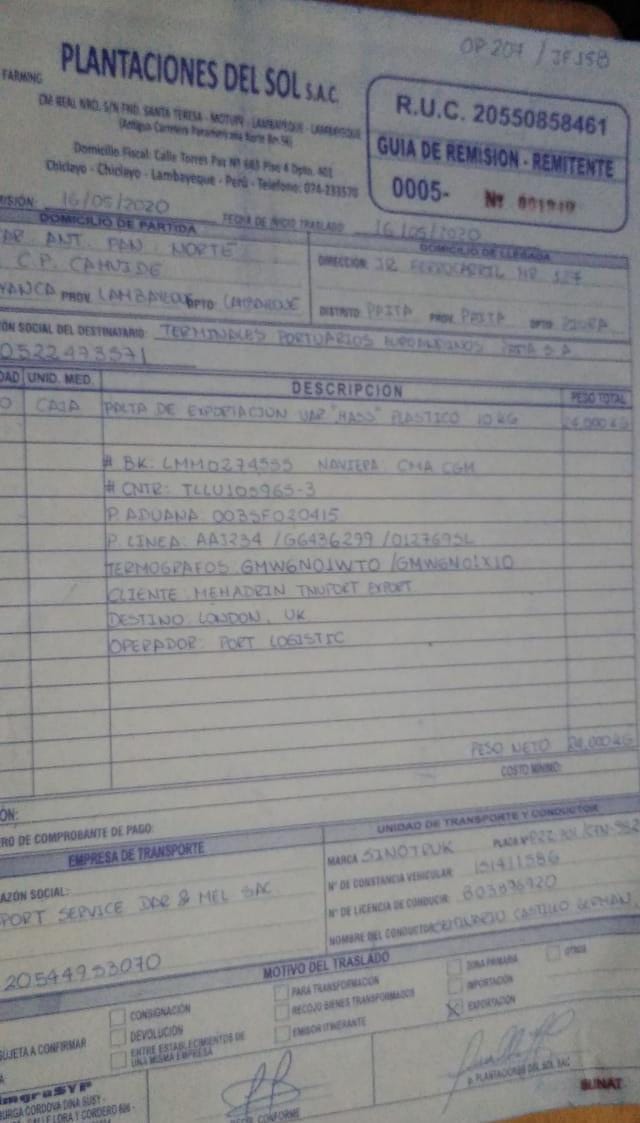 OP 207 / JF158
FARMING
PLANTACIONES DEL SOL S.A.C.
CAR. REAL NRO. S/N FND. SANTA TERESA - MOTUPE - LAMBAYEQUE - LAMBAYEQUE
(Antigua Carretera Panamericana Norte Km 56)
Domicilio Fiscal: Calle Torres Paz Nº 683 Piso 4 Dpto. 401
Chiclayo - Chiclayo - Lambayeque - Perú - Telefono: 074-233570
R.U.C. 20550858461
GUIA DE REMISION - REMITENTE
0005- Nº
MISIÓN: 16/05/2020 FECHA DE INICIO TRASLADO 16/05/2020
DOMICILIO DE PARTIDA
ANT. PAN. NORTE
C.P. CAHUIDE
YANCA PROV. LAMBAYEQUE DPTO. LAMBAYEQUE
DOMICILIO DE LLEGADA
DIRECCIÓN: JR FERROCARRIL NR 127
DISTRITO: PAITA PROV. PAITA DPTO. PIURA
ÓN SOCIAL DEL DESTINATARIO: TERMINALES PORTUARIOS EUROANDINOS PAITA S.A
0522473571
DAD UNID. MED. DESCRIPCION PESO TOTAL
0 CAJA PALTA DE EXPORTACION VAR "HASS" PLASTICO 10 KG 24,000 KG
# BK: LMM0274555 NAVIERA CMA CGM
# CNTR: TLLU105965-3
P. ADUANA: 0035F020415
P. LINEA: AA1234 / G6436299 / 0127695L
TERMOGRAFOS GMW6N01WT0 / GMW6N01X10
CLIENTE MEHADRIN TNUPORT EXPORT
DESTINO LONDON, UK
OPERADOR: PORT LOGISTIC
PESO NETO 24,000 KG
COSTO MÍNIMO:
ÓN:
RO DE COMPROBANTE DE PAGO:
EMPRESA DE TRANSPORTE
AZÓN SOCIAL:
PORT SERVICE DAR & MEL SAC
20544953070
UNIDAD DE TRANSPORTE Y CONDUCTOR
MARCA SINOTRUK PLACA Nº
N° DE CONSTANCIA VEHICULAR: 151411586
N° DE LICENCIA DE CONDUCIR: B03836920
NOMBRE DEL CONDUCTOR: CASTILLO GERMAN
MOTIVO DEL TRASLADO
SUJETA A CONFIRMAR
CONSIGNACIÓN
DEVOLUCIÓN
ENTRE ESTABLECIMIENTOS DE
UNA MISMA EMPRESA
PARA TRANSFORMACIÓN
RECOJO BIENES TRANSFORMADOS
EMISOR ITINERANTE
ZONA PRIMARIA
IMPORTACIÓN
EXPORTACIÓN
OTROS
ImgraSYP
BURGA CORDOVA DINA SUSY -
CALLE LORA Y CORDERO 606 -
CONFORME
P. PLANTACIONES DEL SOL SAC
SUNAT